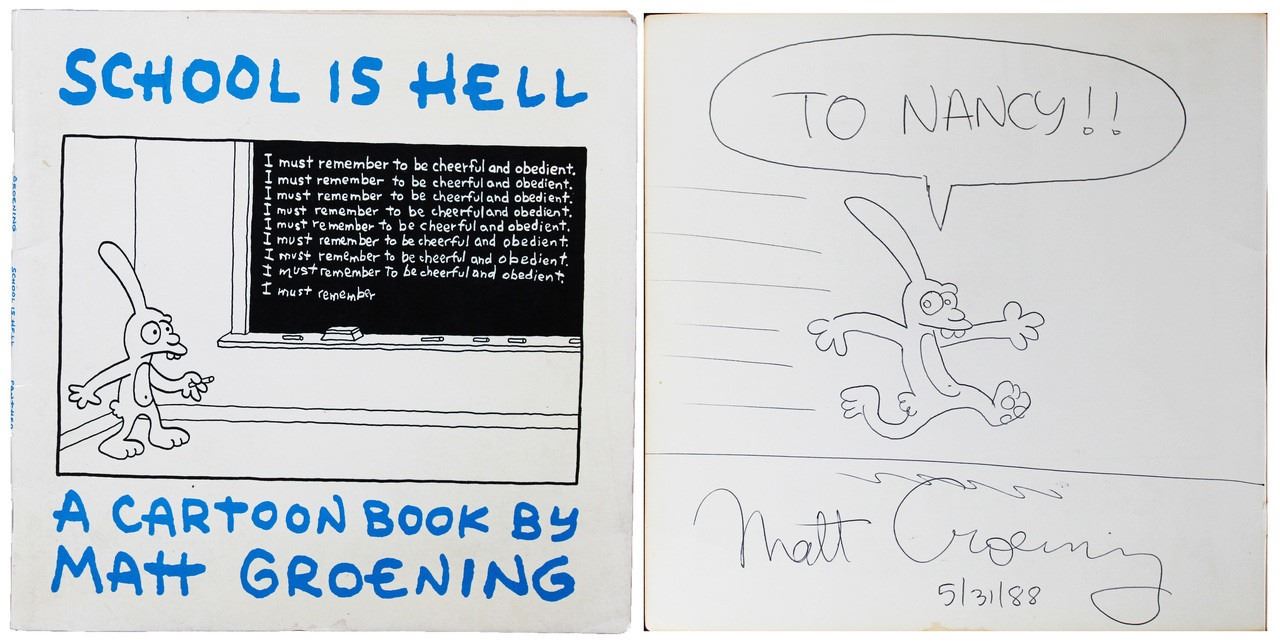 SCHOOL IS HELL
I must remember to be cheerful and obedient.
I must remember to be cheerful and obedient.
I must remember to be cheerful and obedient.
I must remember to be cheerful and obedient.
I must remember to be cheerful and obedient.
I must remember to be cheerful and obedient.
I must remember to be cheerful and obedient.
I must remember To be cheerful and obedient.
I must remember
A CARTOON BOOK BY
MATT GROENING
GROENING SCHOOL IS HELL PANTHEON
TO NANCY!!
Matt Groening
5/31/88